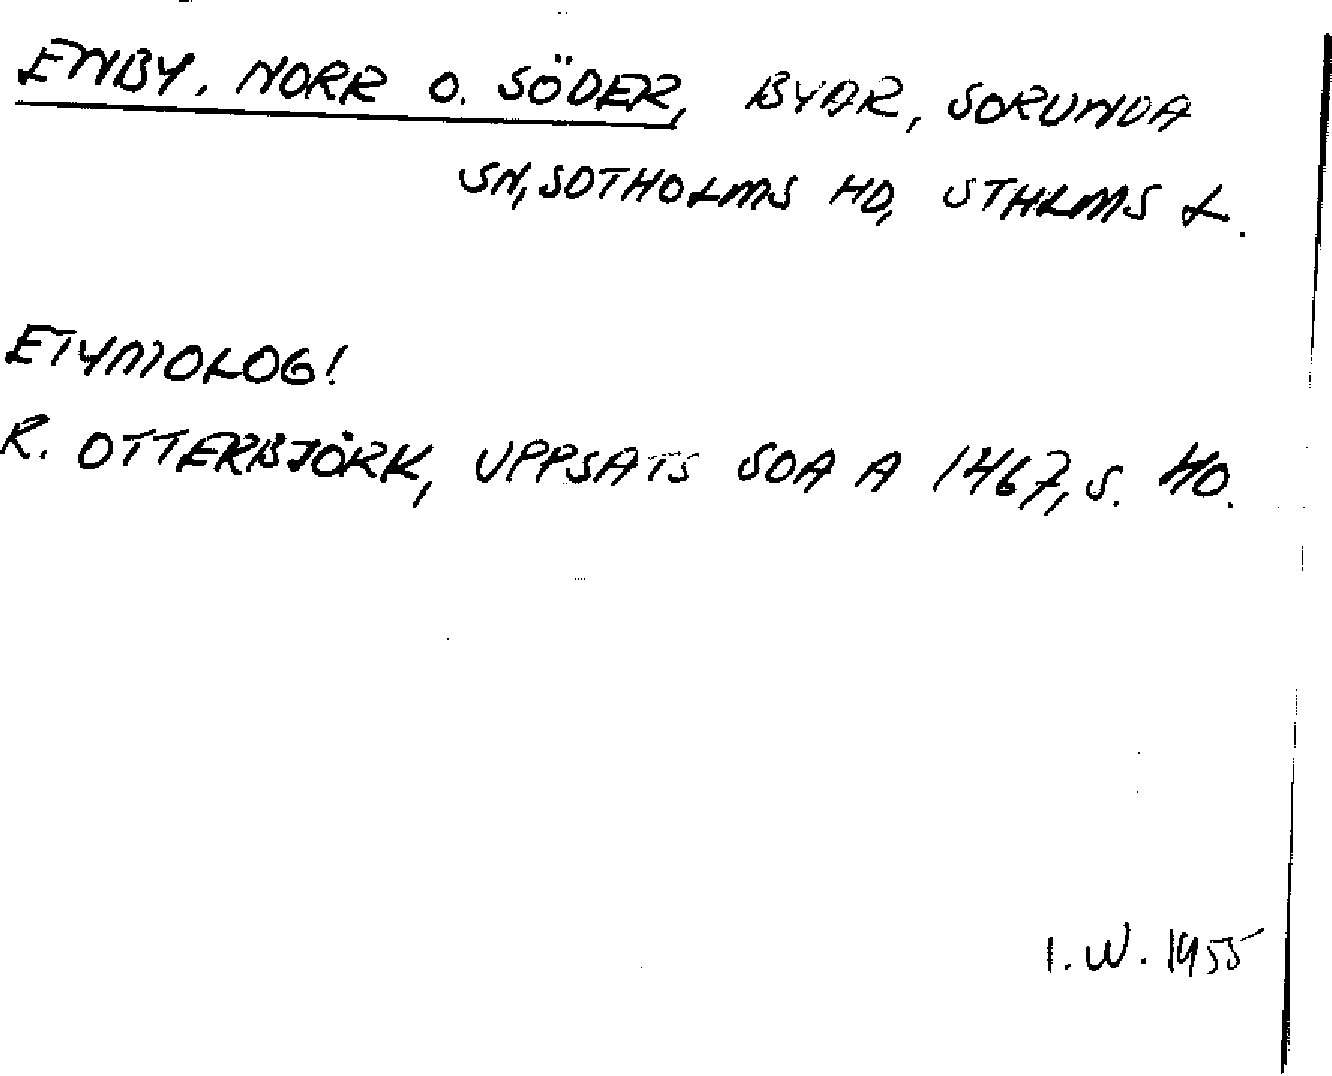 ENBY, NORR O. SÖDER, BYAR, SORUNDA
SN, SOTHOLMS HD, STHLMS L.
ETYMOLOG!
R. OTTERBJÖRK, UPPSATS SOA A 1467, S. 40.
I. W. 1955